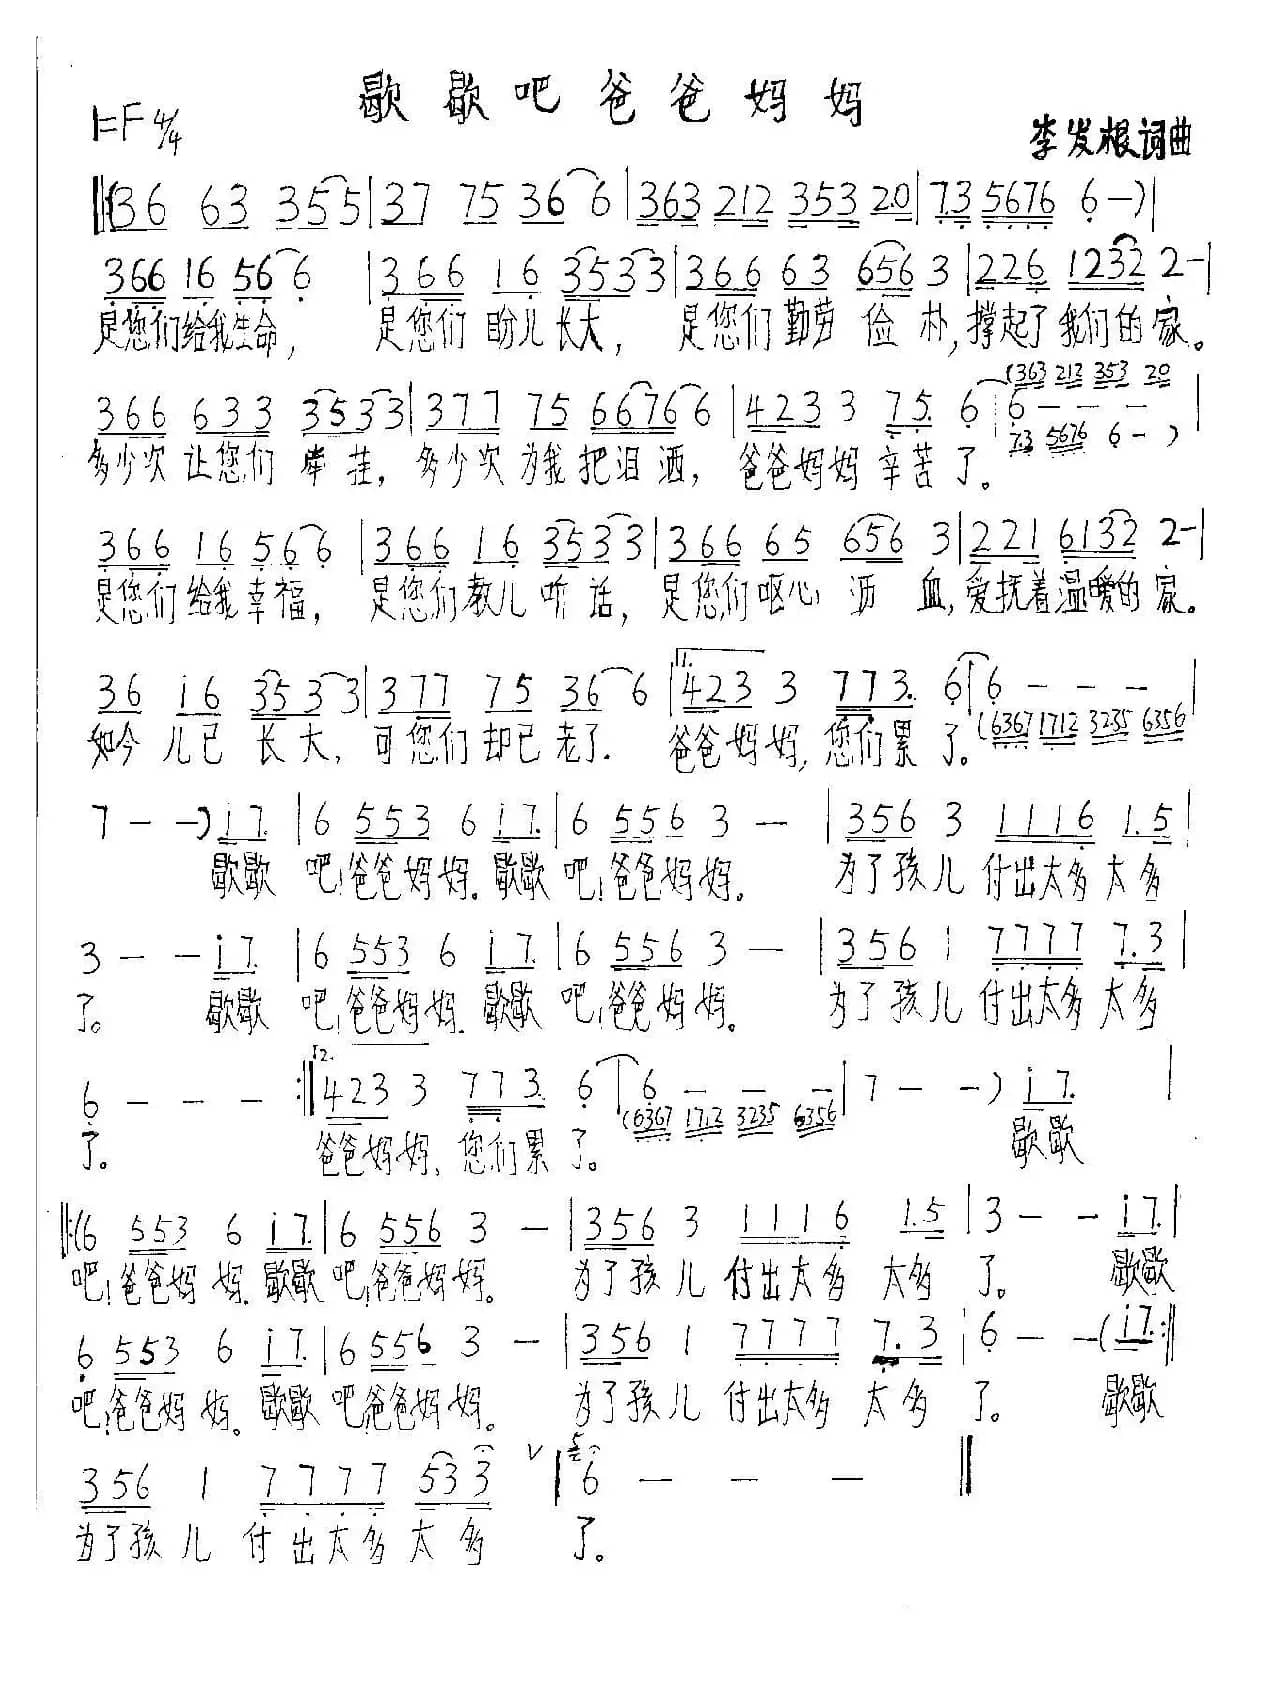 歇歇吧爸爸妈妈
1=F 4/4
李发根词曲
‖:(36 63 3555|37 75 3666|363 212 353 20|7.3 5676 6 -)|
366 16 566 6|366 16 35333|366 63 656 3|226 1232 2-|
是您们给我生命, 是您们盼儿长大, 是您们勤劳俭朴,撑起了我们的家。
(363 212 353 20
366 633 35333|377 75 66766|4233 75. 6|6 - - -|
7.3 5676 6 -)
多少次让您们牵挂,多少次为我把泪洒,爸爸妈妈辛苦了。
366 16 566|366 16 35333|366 65 656 3|221 6132 2-|
是您们给我幸福, 是您们教儿听话, 是您们呕心沥血,爱抚着温暖的家。
1.
36 i6 3533|377 75 366|4233 773. 6|6 - - -
(6367 1712 3235 6356
如今儿已长大,可您们却已老了.爸爸妈妈,您们累了。
7 - -) i7.|6 553 6 i7.|6 556 3 -|356 3 1116 1.5|
歇歇吧!爸爸妈妈.歇歇吧!爸爸妈妈. 为了孩儿付出太多太多
3 - - i7.|6 553 6 i7.|6 556 3 -|356 1 7777 7.3|
了。 歇歇吧!爸爸妈妈.歇歇吧!爸爸妈妈。 为了孩儿付出太多太多
2.
6 - - - :‖4233 773. 6|6 - - -|7 - -) i7.|
(6367 1712 3235 6356
了。 爸爸妈妈,您们累了。 歇歇
‖:(6 553 6 i7.|6 556 3 -|356 3 1116 1.5|3 - - i7.|
吧!爸爸妈妈.歇歇吧!爸爸妈妈。 为了孩儿付出太多太多了。 歇歇
6 553 6 i7.|6 556 3 -|356 1 7777 7.3|6 - -(i7.:‖
吧!爸爸妈妈.歇歇吧!爸爸妈妈。 为了孩儿付出太多太多了。 歇歇
356 1 7777 533 V|6 - - -‖
为了孩儿付出太多太多了。